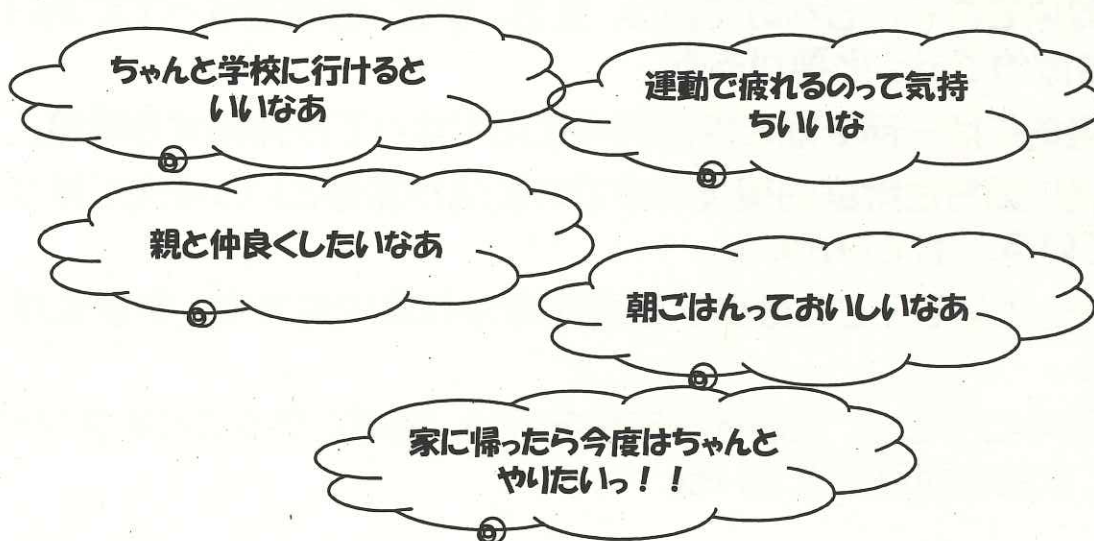 ちゃんと学校に行けると
いいなあ
運動で疲れるのって気持
ちいいな
親と仲良くしたいなあ
朝ごはんっておいしいなあ
家に帰ったら今度はちゃんと
やりたいっ！！